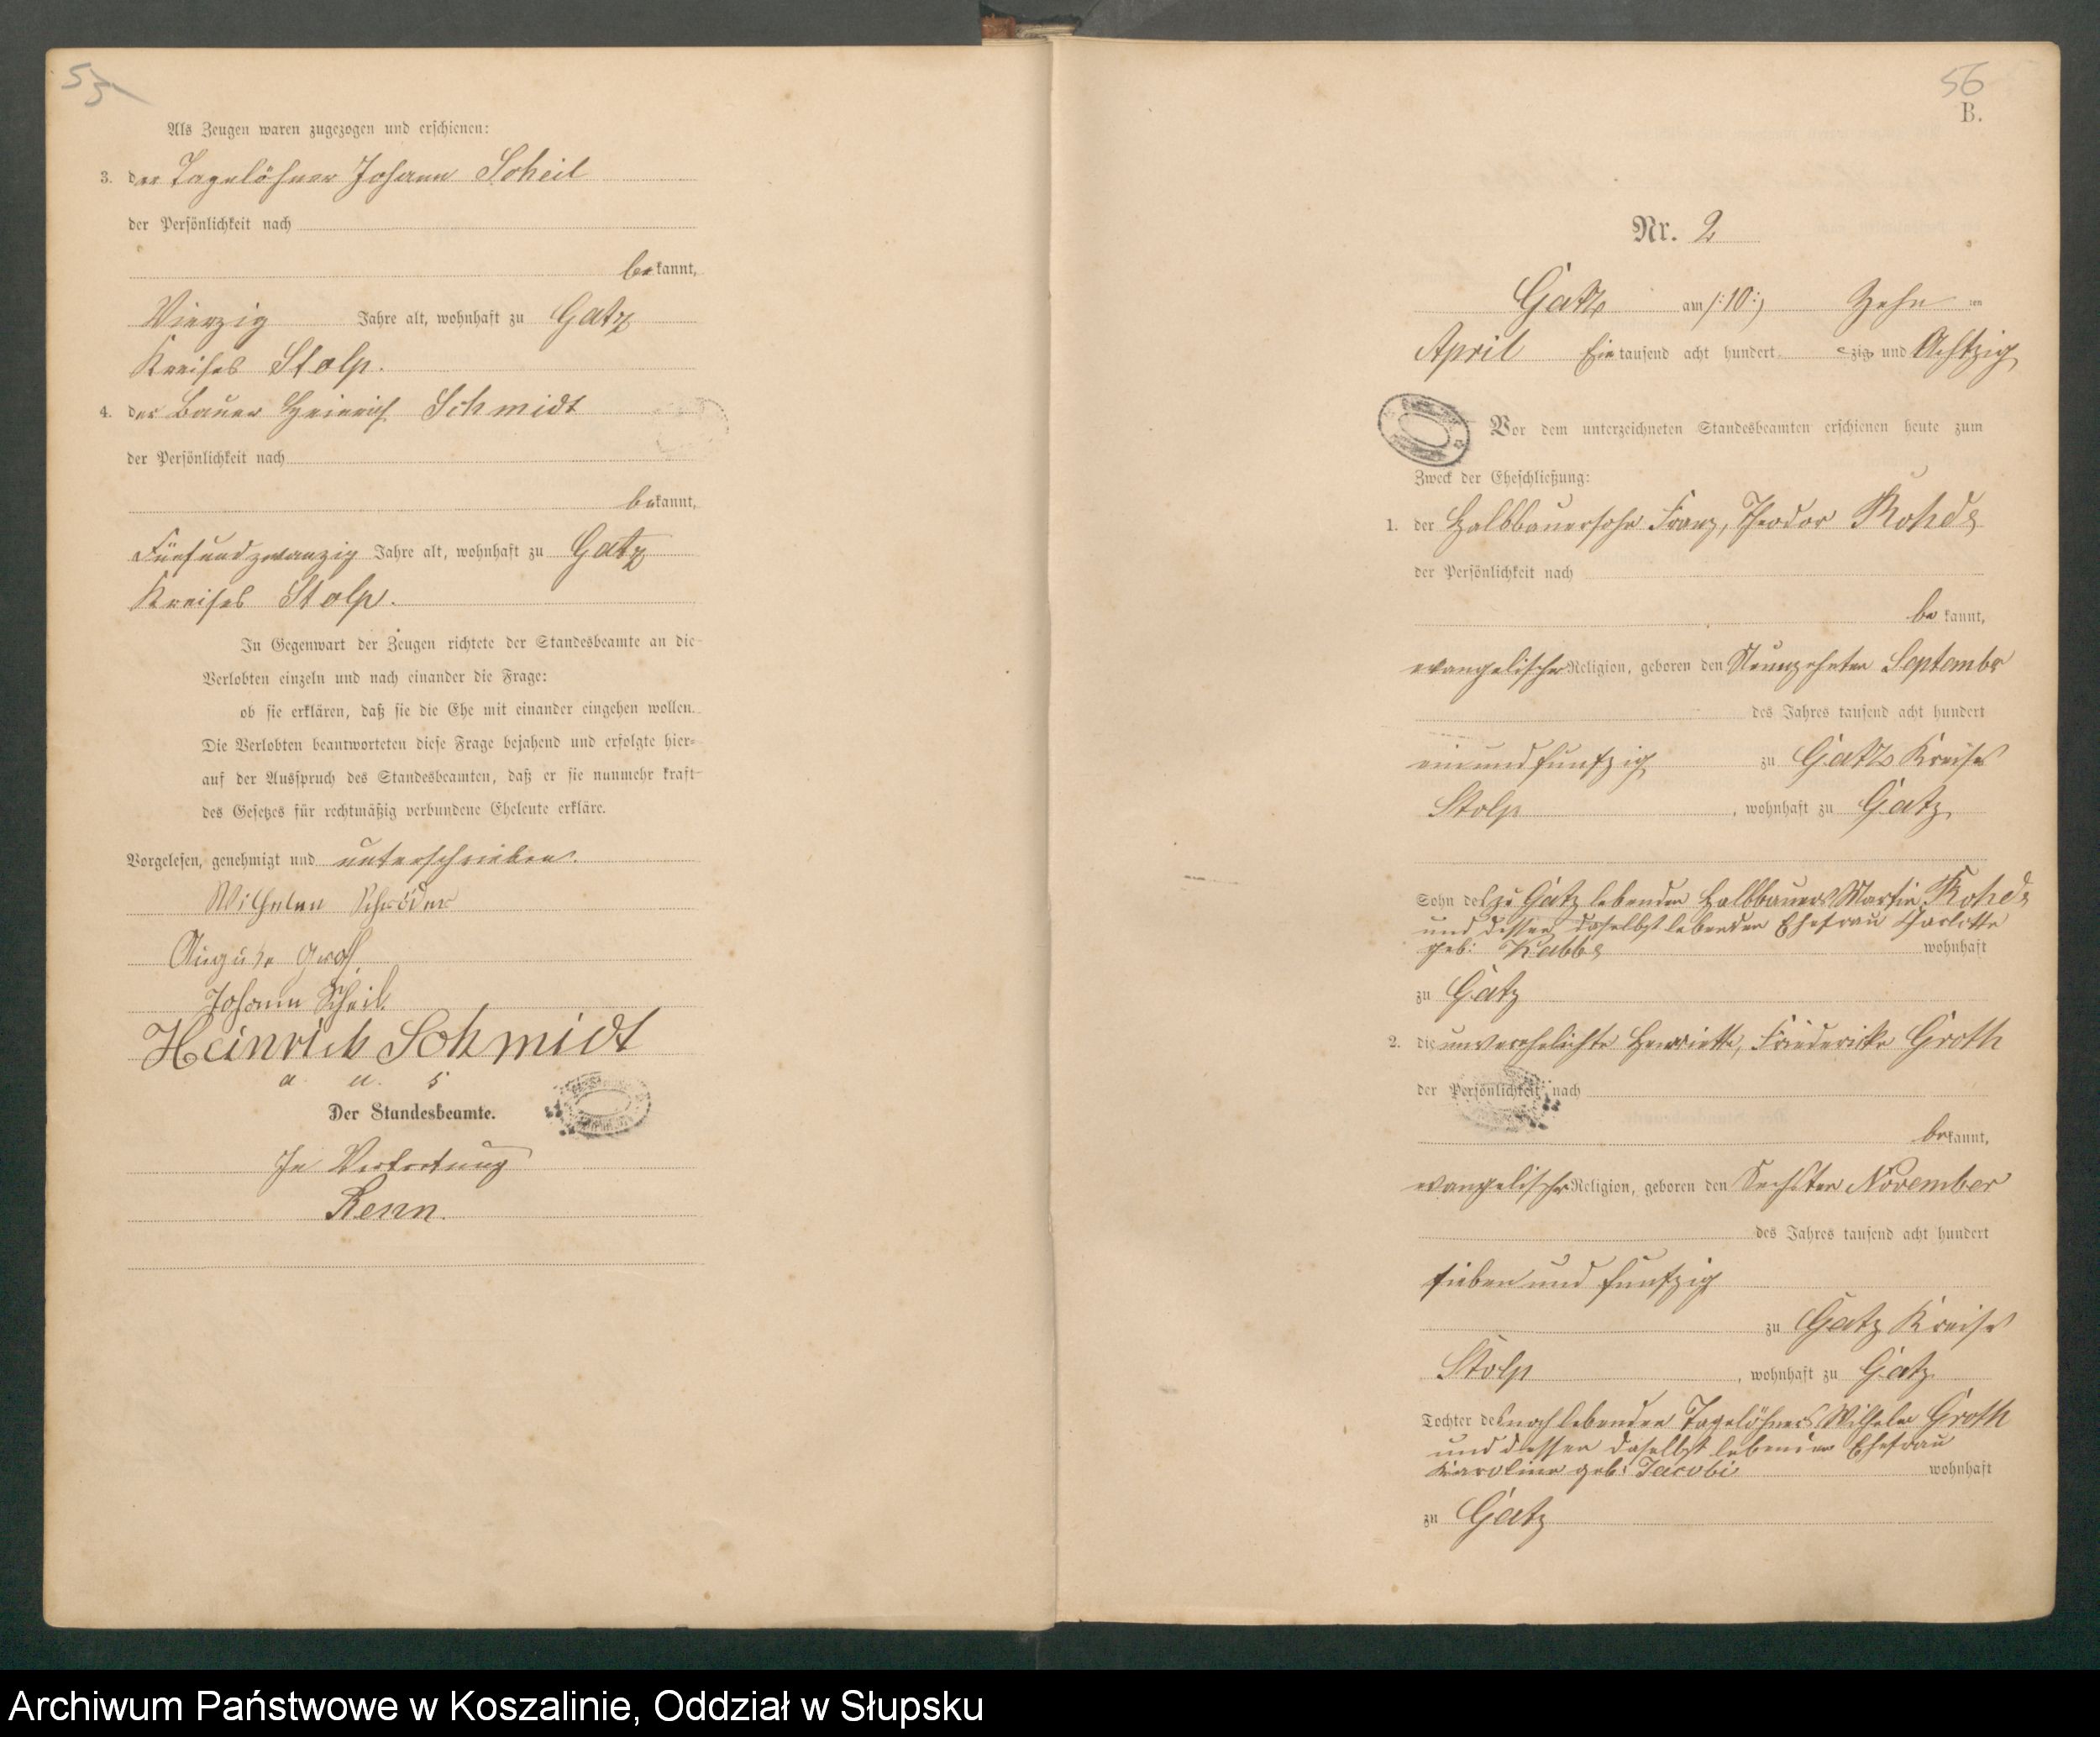 55
Als Zeugen waren zugezogen und erschienen:
3. der Tagelöhner Johann Scheil
der Persönlichkeit nach
bekannt,
Vierzig Jahre alt, wohnhaft zu Gatz
Kreises Stolp.
4. der Bauer Heinrich Schmidt
der Persönlichkeit nach
bekannt,
Fünfundzwanzig Jahre alt, wohnhaft zu Gatz
Kreises Stolp.
In Gegenwart der Zeugen richtete der Standesbeamte an die
Verlobten einzeln und nach einander die Frage:
ob sie erklären, daß sie die Ehe mit einander eingehen wollen.
Die Verlobten beantworteten diese Frage bejahend und erfolgte hier-
auf der Ausspruch des Standesbeamten, daß er sie nunmehr kraft
des Gesetzes für rechtmäßig verbundene Eheleute erkläre.
Vorgelesen, genehmigt und unterschrieben.
Wilhelm Schröder
Auguste
Johann Scheil
Heinrich Schmidt
a. u. s
Der Standesbeamte.
In Vertretung
Renn.
56
B.
Nr. 2
Gatz am /:10:/ Zehn ten
April Ein tausend acht hundert zig und Achtzig
Vor dem unterzeichneten Standesbeamten erschienen heute zum
Zweck der Eheschließung:
1. der Halbbauersohn Franz, Theodor Rohde
der Persönlichkeit nach
be kannt,
evangelischer Religion, geboren den Neunzehnten September
des Jahres tausend acht hundert
einundfunfzig zu Gatz Kreises
Stolp, wohnhaft zu Gatz
Sohn des zu Gatz lebenden Halbbauers Martin Rohde
und dessen daselbst lebenden Ehefrau Charlotte
geb: Kabbe wohnhaft
zu Gatz
2. die unverehelichte Henriette, Friedericke Groth
der Persönlichkeit nach
bekannt,
evangelischer Religion, geboren den Sechsten November
des Jahres tausend acht hundert
sieben und funfzig
zu Gatz Kreises
Stolp, wohnhaft zu Gatz
Tochter des noch lebenden Tagelöhners Wilhelm Groth
und dessen daselbst lebenden Ehefrau
Karoline geb: Jacobi wohnhaft
zu Gatz
Archiwum Państwowe w Koszalinie, Oddział w Słupsku